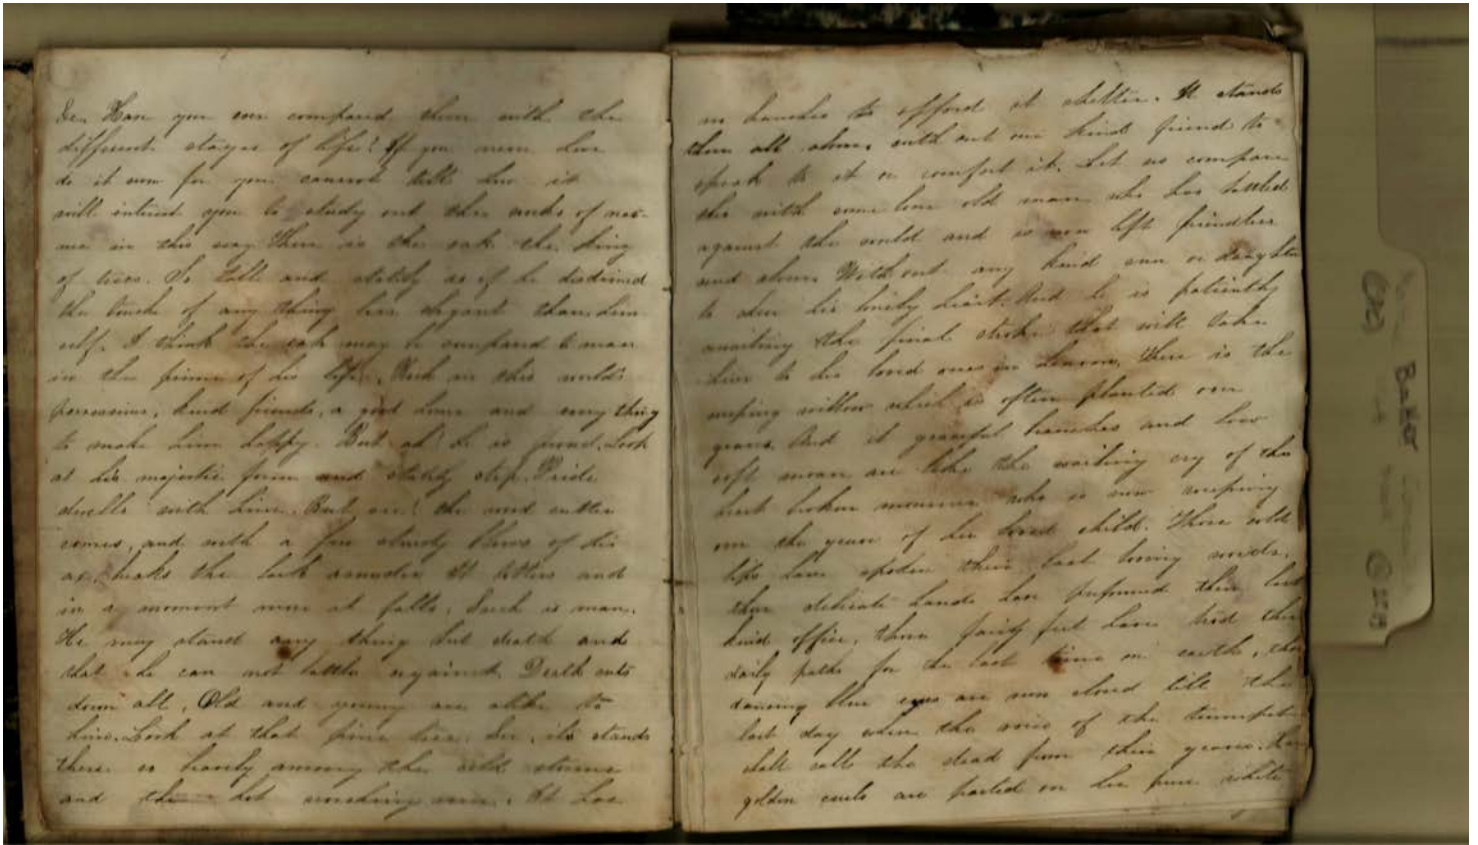 Have you ever compared them with the
different stages of life? If you never have
do it now for you cannot tell how it
will interest you to study out the works of nat-
ure in this way. There is the oak the king
of trees. So tall and stately as if he disdained
the touch of any thing less elegant than him-
self. I think the oak may be compared to man
in the prime of his life. Rich in this world's
possessions, kind friends, a good home and every thing
to make him happy. But ah! he is proud. Look
at his majestic form and stately step. Pride
dwells with him. But see! the wood cutter
comes, and with a few sturdy blows of his
ax breaks the bark asunder. It totters and
in a moment more it falls. Such is man.
He may stand any thing but death and
that he can not battle against. Death cuts
down all. Old and young are alike to
him. Look at that pine tree. See, it stands
there so lonely among the cold storms
and the hot sun. It has
no branches to afford it shelter. It stands
there all alone, with out one kind friend to
speak to it or comfort it. Let us compare
this with some lone old man who has battled
against the world and is now left friendless
and alone. With out any kind son or daughter
to cheer his lonely heart. And he is patiently
awaiting the final stroke that will take
him to his loved ones in heaven. There is the
weeping willow which is often planted over
graves. And it graceful branches and low
soft moan are like the wailing cry of the
heart broken mourner who is now weeping
over the grave of her loved child. Those cold
lips have spoken their last loving words,
those delicate hands have performed their last
kind office, those fairy feet have trod their
daily paths for the last time on earth, those
dancing blue eyes are now closed till the
last day when the voice of the trumpet
shall call the dead from their graves. Her
golden curls are parted on her pure white
Baker